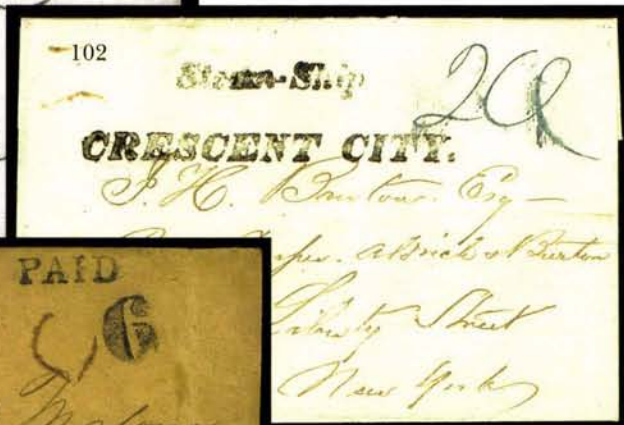 102
Steam-Ship
20
CRESCENT CITY.
J. H. Burton. Esq-
& Burton
Liberty Street
New York
PAID
6